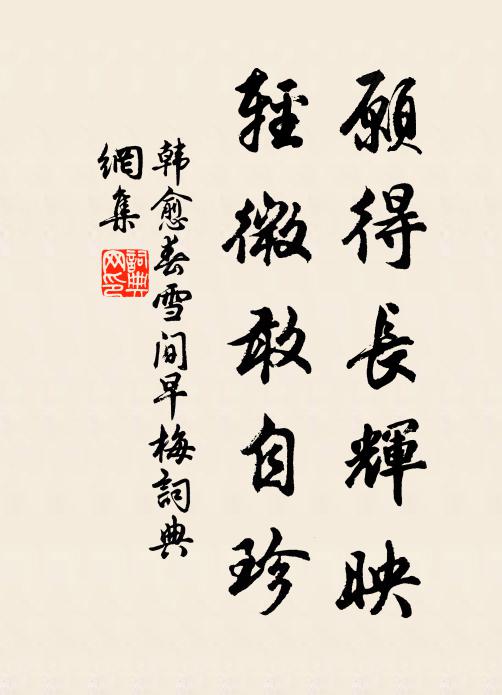 願得長輝映
輕微敢自珍
韩愈春雪间早梅詞典
網集
詞典网印